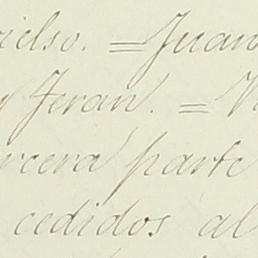 ielso. = Juan
Teran. = V
rcera parte
cedidos al